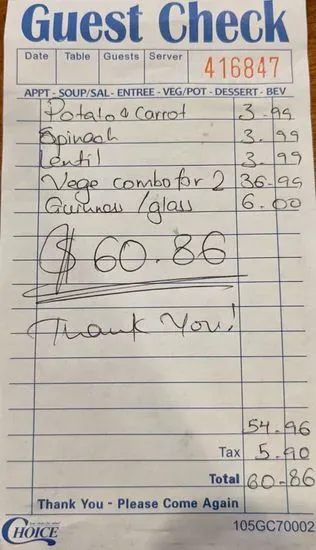 Guest Check
Date Table Guests Server 416847
APPT - SOUP/SAL - ENTREE - VEG/POT - DESSERT - BEV
Potato & Carrot 3.99
Spinach 3.99
Lentil 3.99
Vege combo for 2 36.99
Guinness /glass 6.00
$60.86
Thank You!
54.96
Tax 5.90
Total 60-86
Thank You - Please Come Again
CHOICE 105GC70002